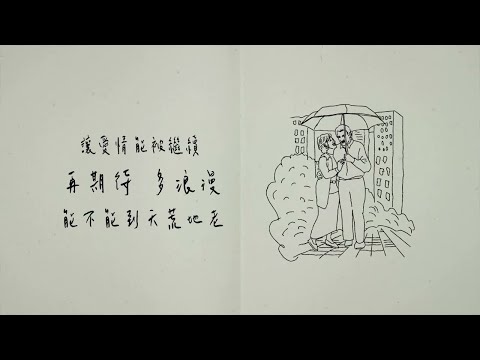 讓愛情能被繼續
再期待 多浪漫
能不能到天荒地老